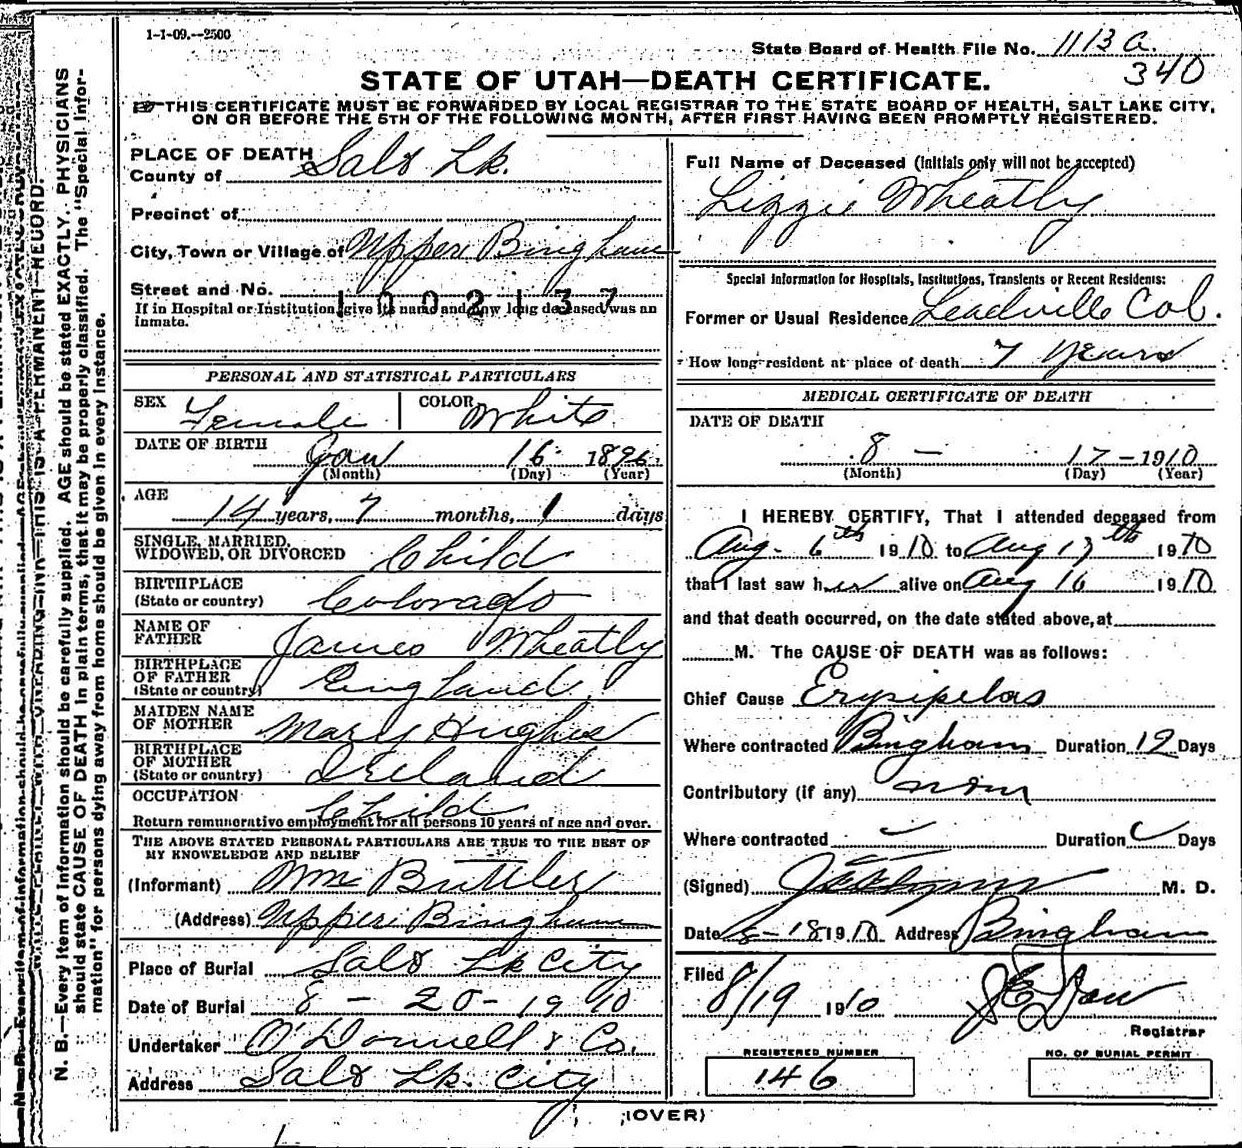 1-1-09.--2500
State Board of Health File No. 1113 a.
340
STATE OF UTAH—DEATH CERTIFICATE.
THIS CERTIFICATE MUST BE FORWARDED BY LOCAL REGISTRAR TO THE STATE BOARD OF HEALTH, SALT LAKE CITY,
ON OR BEFORE THE 5TH OF THE FOLLOWING MONTH, AFTER FIRST HAVING BEEN PROMPTLY REGISTERED.
N. B.—Every item of information should be carefully supplied. AGE should be stated EXACTLY. PHYSICIANS
should state CAUSE OF DEATH in plain terms, that it may be properly classified. The "Special Infor-
mation" for persons dying away from home should be given in every instance.
PLACE OF DEATH
County of Salt Lk.
Precinct of
City, Town or Village of Upper Bingham
Street and No.
1002137
If in Hospital or Institution, give its name and how long deceased was an
inmate.
PERSONAL AND STATISTICAL PARTICULARS
SEX Female COLOR White
DATE OF BIRTH Jan 16 1896
(Month) (Day) (Year)
AGE
14 years, 7 months, 1 days
SINGLE, MARRIED,
WIDOWED, OR DIVORCED Child
BIRTHPLACE
(State or country) Colorado
NAME OF
FATHER James Wheatly
BIRTHPLACE
OF FATHER
(State or country) England
MAIDEN NAME
OF MOTHER Mary Hughes
BIRTHPLACE
OF MOTHER
(State or country) Ireland
OCCUPATION Child
Return remunerative employment for all persons 10 years of age and over.
THE ABOVE STATED PERSONAL PARTICULARS ARE TRUE TO THE BEST OF
MY KNOWELEDGE AND BELIEF
(Informant) Wm Buttler
(Address) Upper Bingham
Place of Burial Salt Lk City
Date of Burial 8 - 20 - 1910
Undertaker O'Donnell & Co.
Address Salt Lk. City
Full Name of Deceased (Initials only will not be accepted)
Lizzie Wheatly
Special Information for Hospitals, Institutions, Transients or Recent Residents:
Former or Usual Residence Leadville Col.
How long resident at place of death 7 Years
MEDICAL CERTIFICATE OF DEATH
DATE OF DEATH
8 - 17 - 1910
(Month) (Day) (Year)
I HEREBY CERTIFY, That I attended deceased from
Aug. 6th 1910 to Aug 17th 1910
that I last saw her alive on Aug 16 1910
and that death occurred, on the date stated above, at
M. The CAUSE OF DEATH was as follows:
Chief Cause Erysipelas
Where contracted Bingham Duration 12 Days
Contributory (if any) non
Where contracted Duration Days
(Signed) M. D.
Date 8-18 1910 Address Bingham
Filed
8/19 1910
Registrar
REGISTERED NUMBER
146
NO. OF BURIAL PERMIT
(OVER)